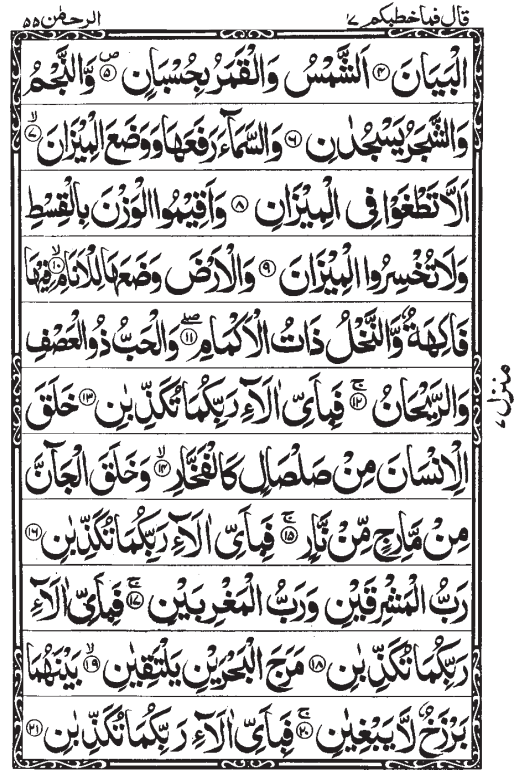 قال فما خطبكم ٢٧ الرحمٰن ٥٥
الْبَيَانَ ۝٤ اَلشَّمْسُ وَالْقَمَرُ بِحُسْبَانٍ ۝٥ ص وَّالنَّجْمُ
وَالشَّجَرُ يَسْجُدٰنِ ۝٦ وَالسَّمَآءَ رَفَعَهَا وَوَضَعَ الْمِيْزَانَ ۝٧ لا
اَلَّا تَطْغَوْا فِى الْمِيْزَانِ ۝٨ وَاَقِيْمُوا الْوَزْنَ بِالْقِسْطِ
وَلَا تُخْسِرُوا الْمِيْزَانَ ۝٩ وَالْاَرْضَ وَضَعَهَا لِلْاَنَامِ ۝١٠ لا فِيْهَا
فَاكِهَةٌ وَّالنَّخْلُ ذَاتُ الْاَكْمَامِ ۝١١ صلے وَالْحَبُّ ذُو الْعَصْفِ
وَالرَّيْحَانُ ۝١٢ ج فَبِاَىِّ اٰلَآءِ رَبِّكُمَا تُكَذِّبٰنِ ۝١٣ خَلَقَ
الْاِنْسَانَ مِنْ صَلْصَالٍ كَالْفَخَّارِ ۝١٤ لا وَخَلَقَ الْجَآنَّ
مِنْ مَّارِجٍ مِّنْ نَّارٍ ۝١٥ ج فَبِاَىِّ اٰلَآءِ رَبِّكُمَا تُكَذِّبٰنِ ۝١٦
رَبُّ الْمَشْرِقَيْنِ وَرَبُّ الْمَغْرِبَيْنِ ۝١٧ ج فَبِاَىِّ اٰلَآءِ
رَبِّكُمَا تُكَذِّبٰنِ ۝١٨ مَرَجَ الْبَحْرَيْنِ يَلْتَقِيٰنِ ۝١٩ لا بَيْنَهُمَا
بَرْزَخٌ لَّا يَبْغِيٰنِ ۝٢٠ ج فَبِاَىِّ اٰلَآءِ رَبِّكُمَا تُكَذِّبٰنِ ۝٢١
منزل ٧